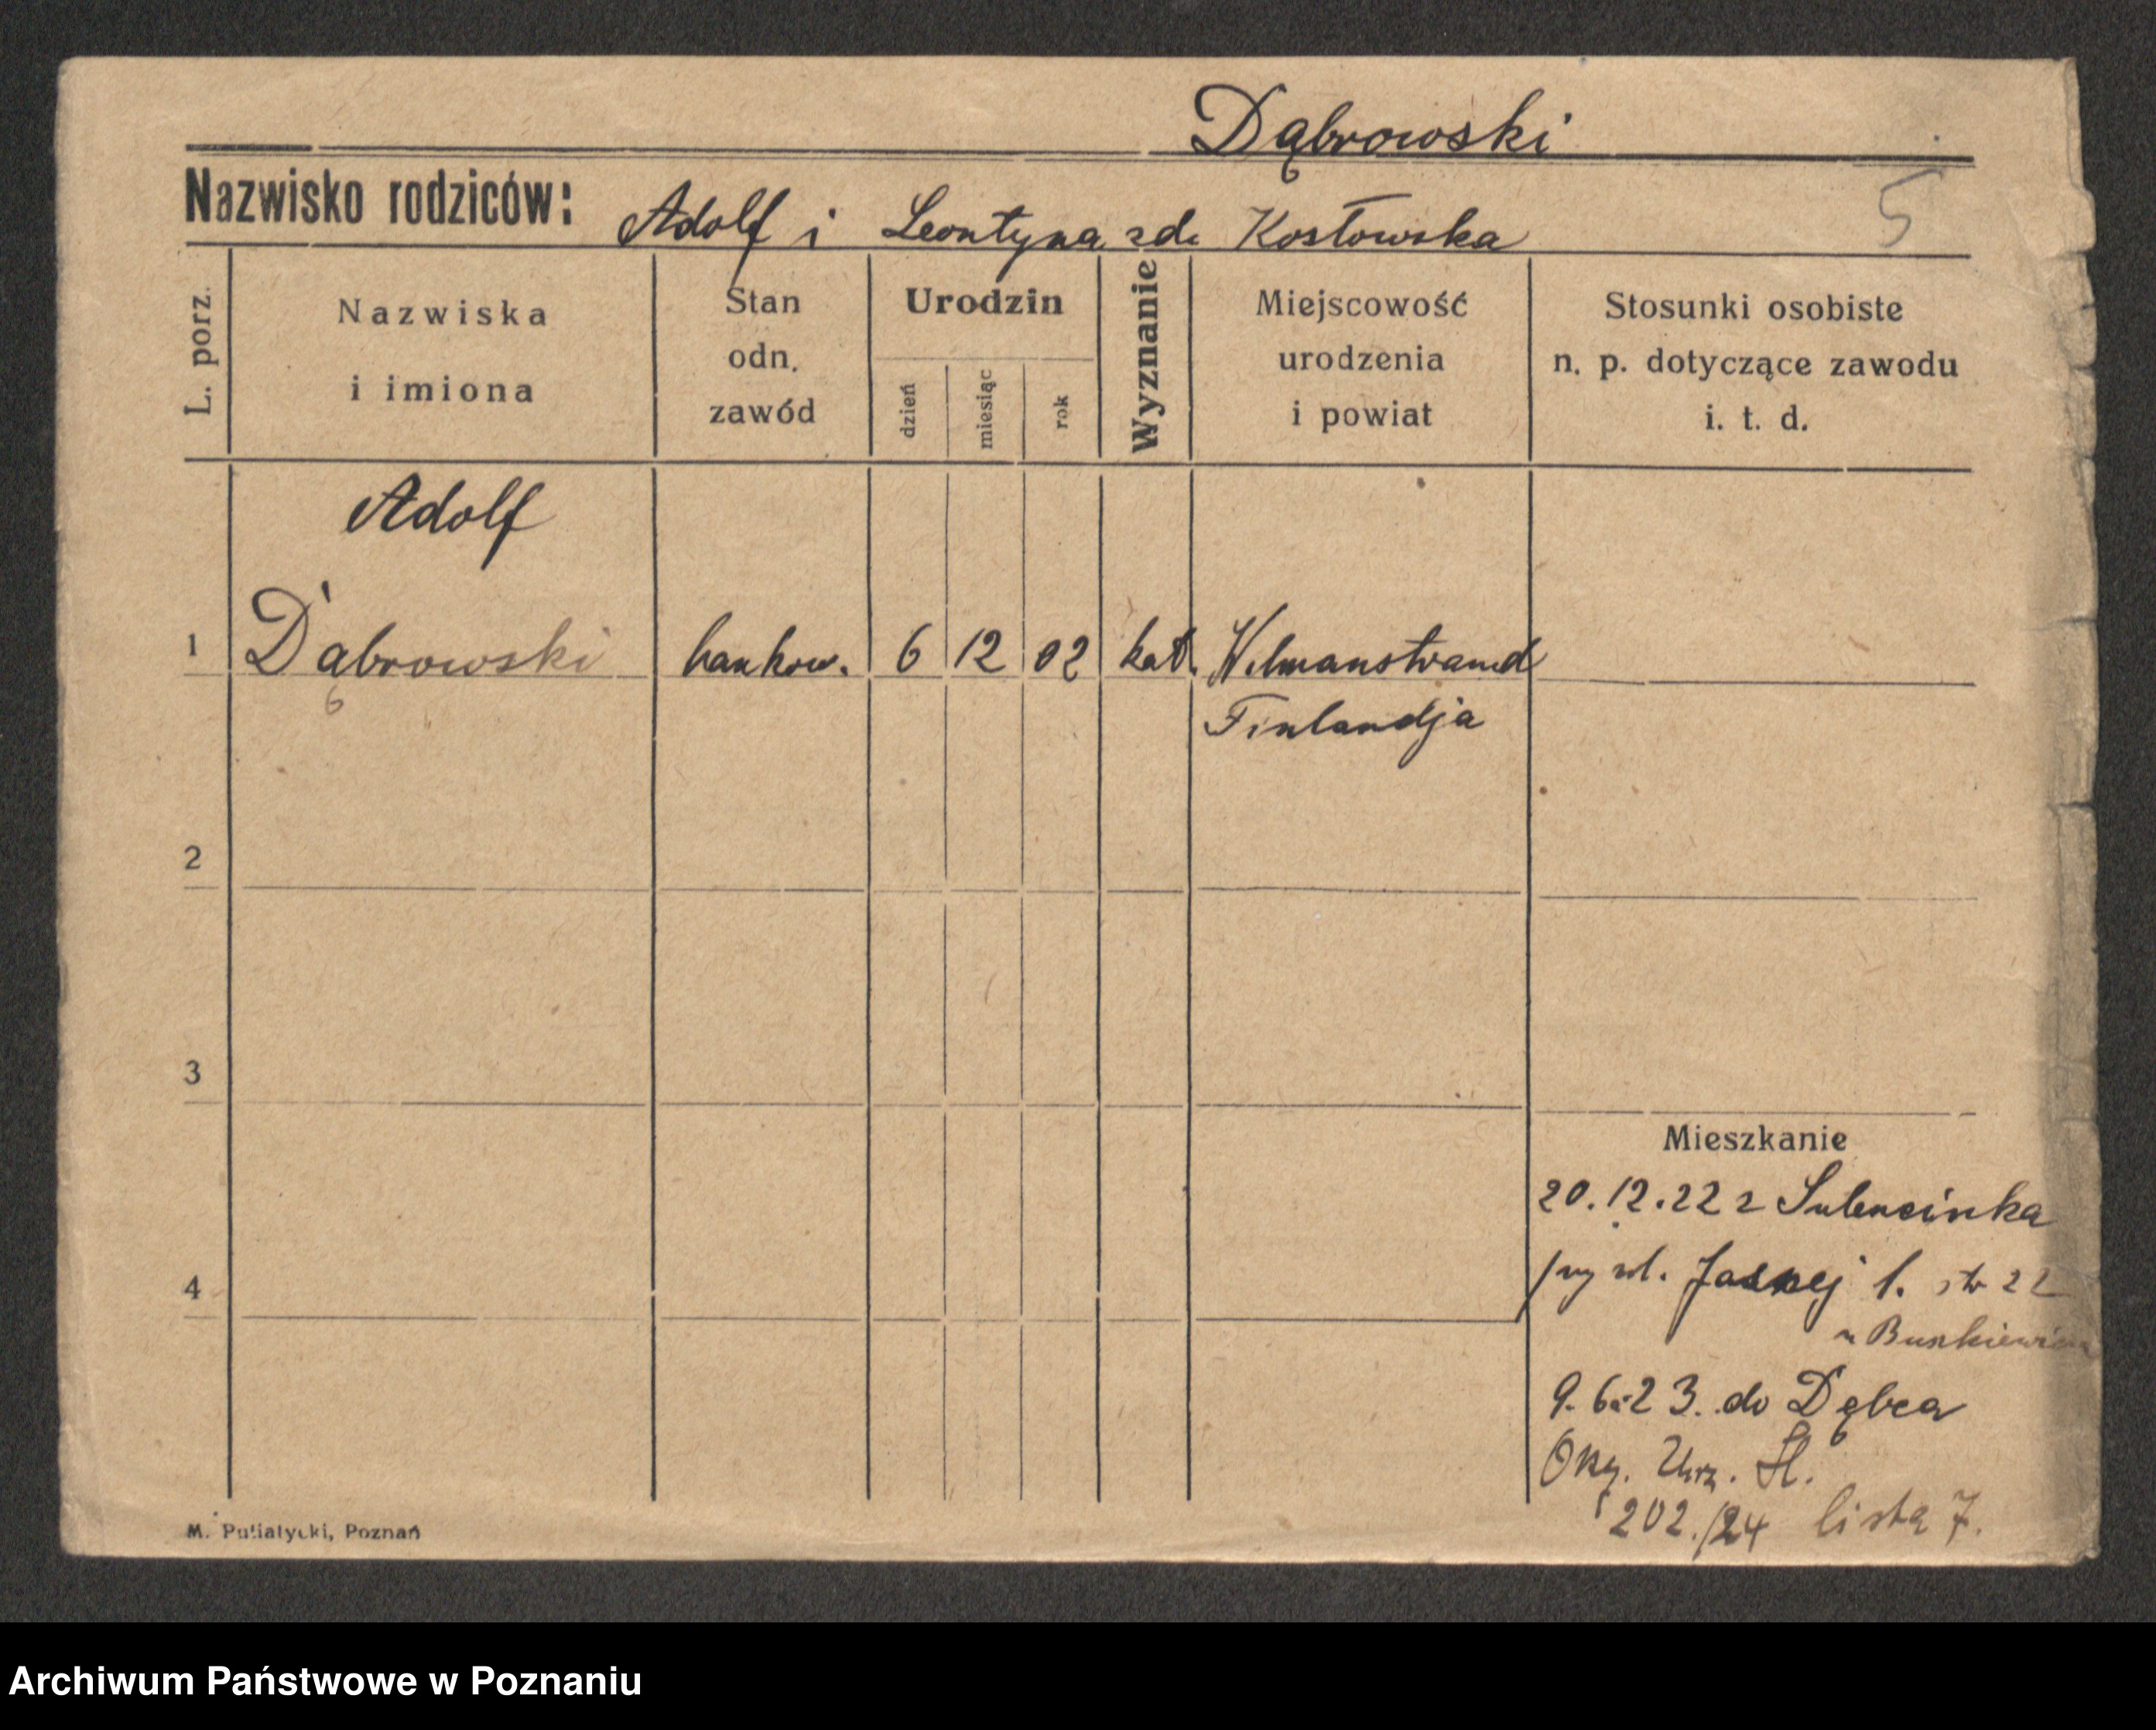 Dąbrowski
Nazwisko rodziców: Adolf i Leontyna zd. Kostowska
5
L. porz.
Nazwiska
i imiona
Stan
odn.
zawód
Urodzin
dzień
miesiąc
rok
Wyznanie
Miejscowość
urodzenia
i powiat
Stosunki osobiste
n. p. dotyczące zawodu
i. t. d.
Adolf
1 Dąbrowski bankow. 6 12 02 kat. Wilmanstrand
Finlandja
2
3
4
Mieszkanie
20.12.22 z Sulencinka
przy ul. Jasnej 1. str 22
9.6.23. do Dębca
Okg. Urz.
202./24 lista 7.
M. Putiatycki, Poznań
Archiwum Państwowe w Poznaniu